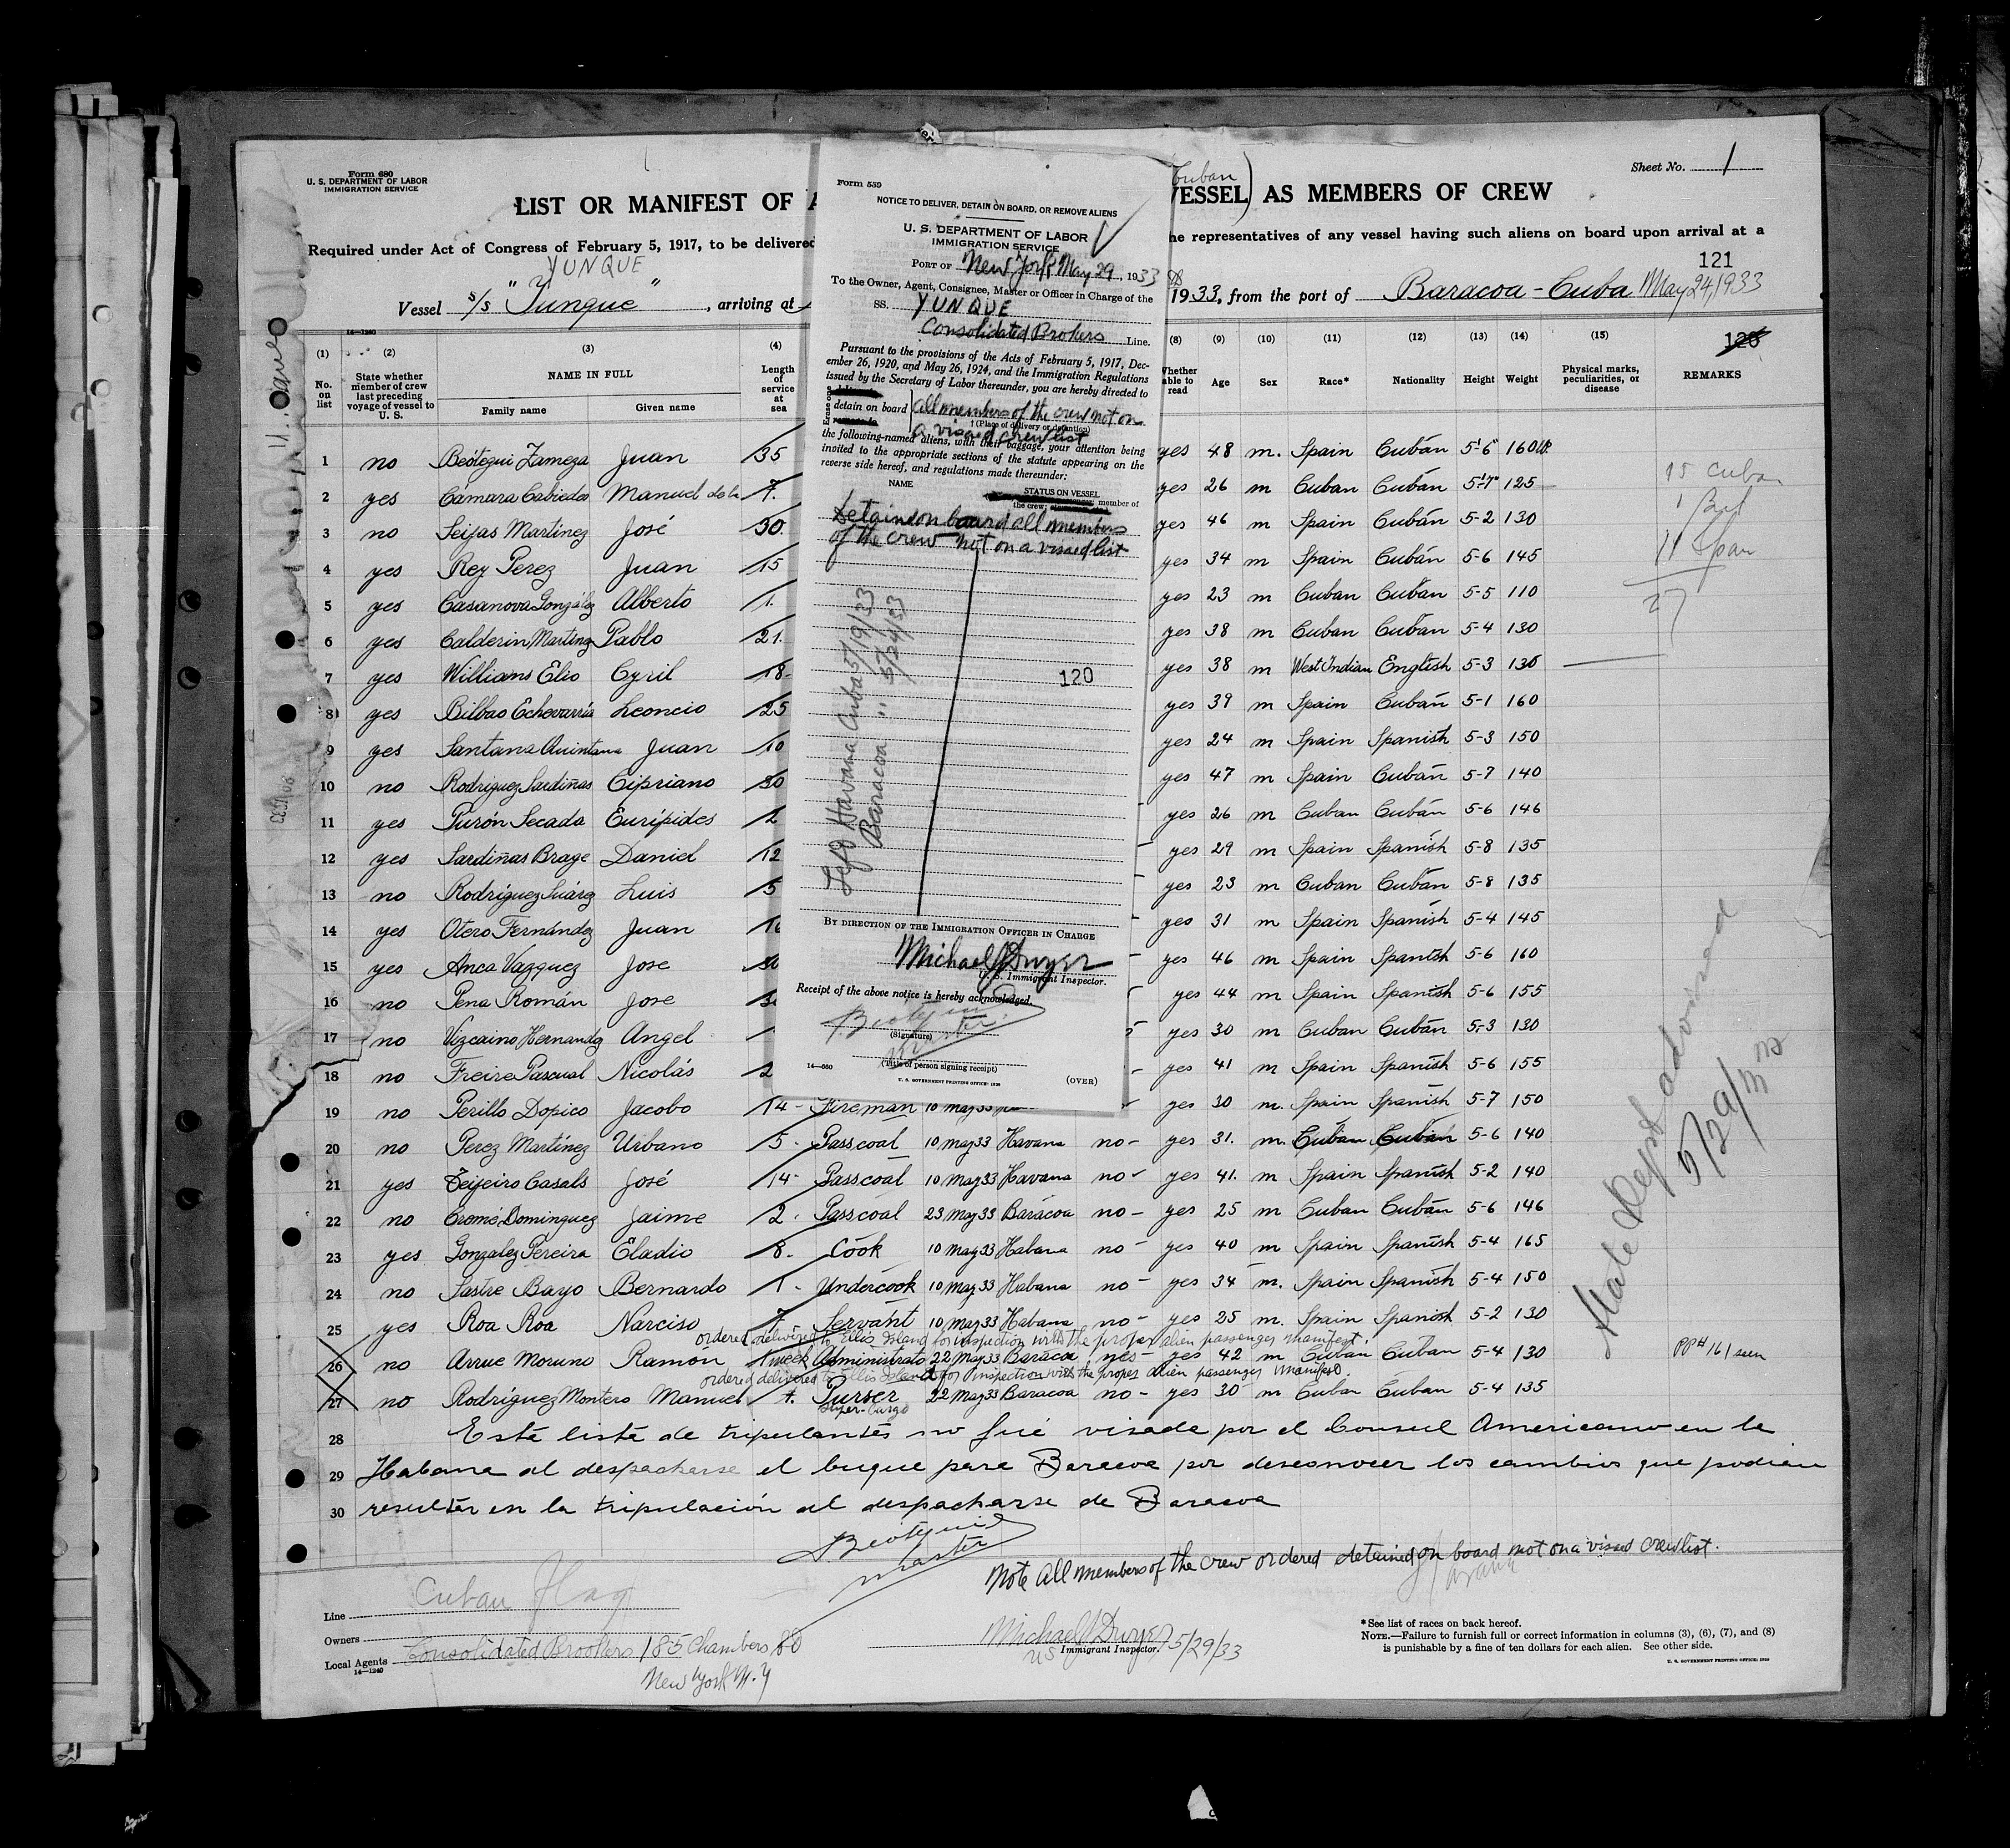 Form 680
U. S. DEPARTMENT OF LABOR
IMMIGRATION SERVICE
Sheet No. 1
(Cuban
LIST OR MANIFEST OF A
VESSEL) AS MEMBERS OF CREW
Required under Act of Congress of February 5, 1917, to be delivered
he representatives of any vessel having such aliens on board upon arrival at a
121
YUNQUE
Vessel s/s "Yunque", arriving at
1933, from the port of Baracoa - Cuba May 24, 1933
14—1240
120
(1) (2) (3) (4)
(8) (9) (10) (11) (12) (13) (14) (15)
No. on list
State whether member of crew last preceding voyage of vessel to U. S.
NAME IN FULL
Family name Given name
Length of service at sea
Whether able to read
Age Sex Race* Nationality Height Weight
Physical marks, peculiarities, or disease
REMARKS
1 no Beótegui Zameza Juan 35 yes 48 m. Spain Cubán 5-6 160
2 yes Cámara Cabiedes Manuel de la 7. yes 26 m Cuban Cubán 5-7 125
3 no Seijas Martinez José 30. yes 46 m Spain Cubán 5-2 130
4 yes Rey Perez Juan 15 yes 34 m Spain Cubán 5-6 145
5 yes Casanova González Alberto 1. yes 23 m Cuban Cubán 5-5 110
6 yes Calderin Martinez Pablo 21. yes 38 m Cuban Cubán 5-4 130
7 yes Willians Elio Cyril 18. yes 38 m West Indian English 5-3 136
8 yes Bilbao Echevarría Leoncio 25 yes 39 m Spain Cubán 5-1 160
9 yes Santana Quintana Juan 10 yes 24 m Spain Spanish 5-3 150
10 no Rodriguez Sardiñas Cipriano 30 yes 47 m Spain Cubán 5-7 140
11 yes Purón Secada Eurípides 2 yes 26 m Cuban Cubán 5-6 146
12 yes Sardiñas Brage Daniel 12 yes 29 m Spain Spanish 5-8 135
13 no Rodríguez Suárez Luis 5 yes 23 m Cuban Cubán 5-8 135
14 yes Otero Fernández Juan yes 31 m Spain Spanish 5-4 145
15 yes Anca Vazquez Jose yes 46 m Spain Spanish 5-6 160
16 no Pena Román Jose yes 44 m Spain Spanish 5-6 155
17 no Vizcaino Hernandez Angel yes 30 m Cuban Cubán 5-3 130
18 no Freire Pascual Nicolás 2 yes 41 m Spain Spanish 5-6 155
19 no Perillo Dopico Jacobo 14- Fireman 10 May 33 yes 30 m. Spain Spanish 5-7 150
20 no Perez Martínez Urbano 5- Passcoal 10 May 33 Havana no- yes 31. m. Cuban Cubán 5-6 140
21 yes Teijeiro Casals José 14- Passcoal 10 May 33 Havana no- yes 41. m Spain Spanish 5-2 140
22 no Cromé Dominguez Jaime 2. Passcoal 23 May 33 Baracoa no- yes 25 m Cuban Cubán 5-6 146
23 yes Gonzalez Pereira Eladio 8. Cook 10 May 33 Habana no- yes 40 m Spain Spanish 5-4 165
24 no Sastre Bayo Bernardo 1- Undercook 10 May 33 Habana no- yes 34 m. Spain Spanish 5-4 150
25 yes Roa Roa Narciso 7. Servant 10 May 33 Habana no- yes 25 m. Spain Spanish 5-2 130
ordered delivered to Ellis Island for inspection with the proper alien passenger manifest.
26 no Arrue Moruno Ramón 1 week Administrato 22 May 33 Baracoa yes- yes 42 m Cuban Cuban 5-4 130 PP# 161 seen
ordered delivered to Ellis Island for inspection with the proper alien passenger manifest.
27 no Rodríguez Montero Manuel 1. Purser 22 May 33 Baracoa no- yes 30 m Cuban Cuban 5-4 135
Super-Cargo
28 Esta lista de tripulantes no fué visada por el Consul Americano en la
29 Habana al despacharse el buque para Baracoa por desconocer los cambios que podian
30 resultar en la tripulación al despacharse de Baracoa
Beotegui
Master
Note all members of the crew ordered detained on board not on a visaed crewlist.
15 Cuban
1 Brit
11 Span
27
State Dept advised
5/29/33
Line Cuban Flag
Owners
Local Agents Consolidated Brookers 185 Chambers
New York N.Y
14—1240
Michael J Dwyer 5/29/33
US Immigrant Inspector.
*See list of races on back hereof.
NOTE.—Failure to furnish full or correct information in columns (3), (6), (7), and (8)
is punishable by a fine of ten dollars for each alien. See other side.
U. S. GOVERNMENT PRINTING OFFICE: 1929
Form 539
NOTICE TO DELIVER, DETAIN ON BOARD, OR REMOVE ALIENS
U. S. DEPARTMENT OF LABOR
IMMIGRATION SERVICE
PORT OF New York May 29, 1933
To the Owner, Agent, Consignee, Master or Officer in Charge of the
SS. YUNQUE
Consolidated Brokers Line.
Pursuant to the provisions of the Acts of February 5, 1917, Dec-
ember 26, 1920, and May 26, 1924, and the Immigration Regulations
issued by the Secretary of Labor thereunder, you are hereby directed to
detain on board all members of the crew not on
† (Place of delivery or detention)
a visaed crew list
the following-named aliens, with their baggage, your attention being
invited to the appropriate sections of the statute appearing on the
reverse side hereof, and regulations made thereunder:
NAME STATUS ON VESSEL
member of the crew
Detain on board all members
of the crew not on a visaed list
Left Havana Cuba 5/19/33
Baracoa " 5/24/33
120
BY DIRECTION OF THE IMMIGRATION OFFICER IN CHARGE
Michael J Dwyer
U. S. Immigrant Inspector.
Receipt of the above notice is hereby acknowledged.
Beotegui
(Signature)
Master
(Title of person signing receipt)
14—660
U. S. GOVERNMENT PRINTING OFFICE: 1930
(OVER)